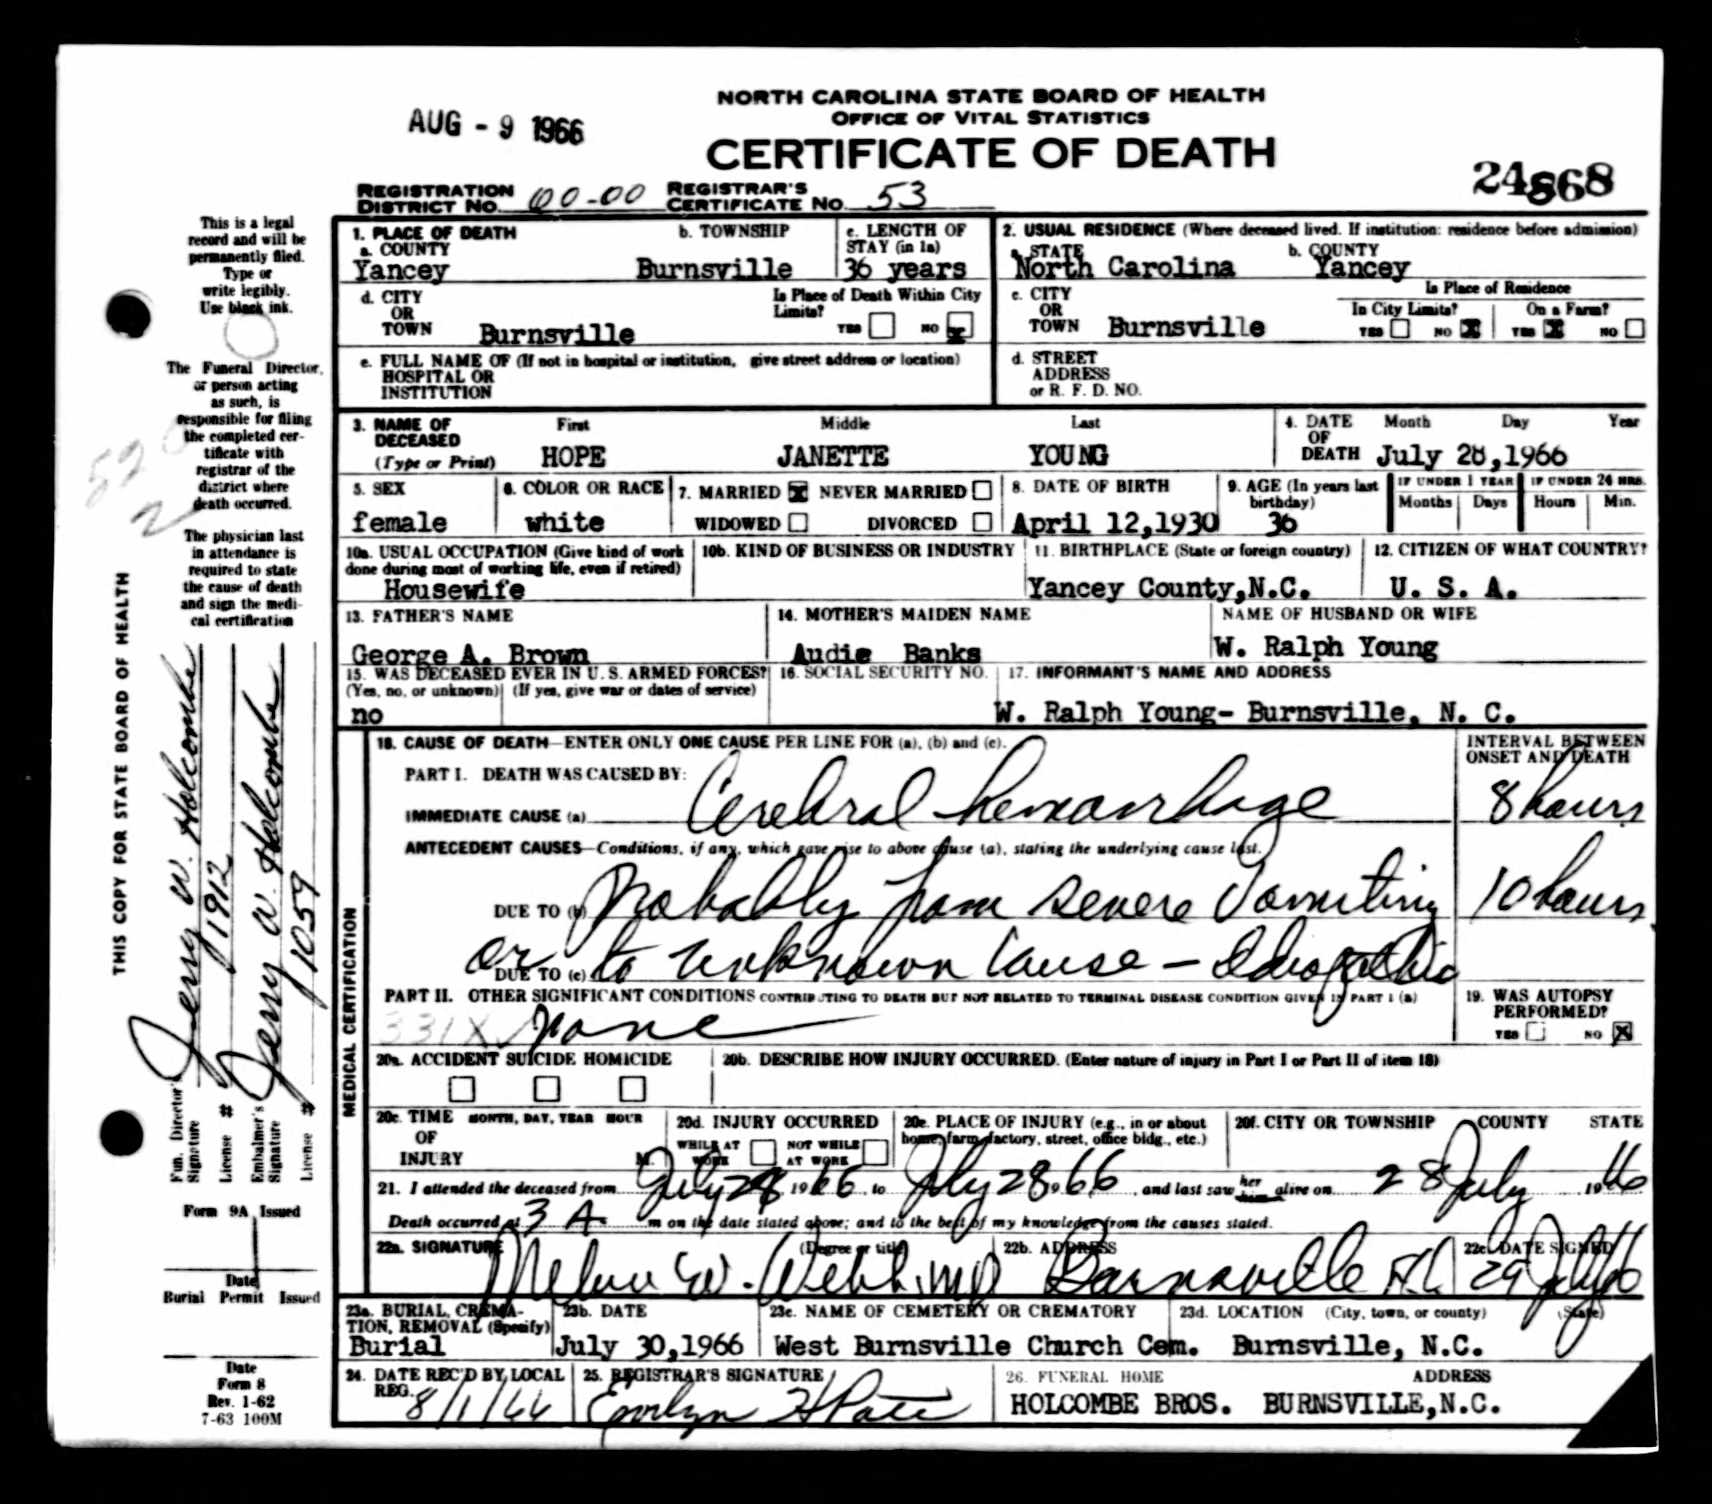 NORTH CAROLINA STATE BOARD OF HEALTH
OFFICE OF VITAL STATISTICS
AUG - 9 1966
CERTIFICATE OF DEATH
24868
REGISTRATION DISTRICT NO. 00-00 REGISTRAR'S CERTIFICATE NO. 53
This is a legal
record and will be
permanently filed.
Type or
write legibly.
Use black ink.
The Funeral Director,
or person acting
as such, is
responsible for filing
the completed cer-
tificate with
registrar of the
district where
death occurred.
The physician last
in attendance is
required to state
the cause of death
and sign the medi-
cal certification
THIS COPY FOR STATE BOARD OF HEALTH
Jerry W. Holcombe
1912
Jerry W. Holcombe
1059
Fun. Director's Signature
License #
Embalmer's Signature
License #
Form 9A Issued
Date
Burial Permit Issued
Date
Form 8
Rev. 1-62
7-63 100M
1. PLACE OF DEATH
a. COUNTY
Yancey
b. TOWNSHIP
Burnsville
c. LENGTH OF STAY (in 1a)
36 years
2. USUAL RESIDENCE (Where deceased lived. If institution: residence before admission)
a. STATE
North Carolina
b. COUNTY
Yancey
d. CITY OR TOWN
Burnsville
Is Place of Death Within City Limits?
YES NO X
c. CITY OR TOWN
Burnsville
Is Place of Residence
In City Limits? On a Farm?
YES NO X YES X NO
e. FULL NAME OF (If not in hospital or institution, give street address or location)
HOSPITAL OR
INSTITUTION
d. STREET
ADDRESS
or R. F. D. NO.
3. NAME OF DECEASED
(Type or Print)
First Middle Last
HOPE JANETTE YOUNG
4. DATE OF DEATH
Month Day Year
July 28,1966
5. SEX
female
6. COLOR OR RACE
white
7. MARRIED X NEVER MARRIED
WIDOWED DIVORCED
8. DATE OF BIRTH
April 12,1930
9. AGE (In years last birthday)
36
IF UNDER 1 YEAR IF UNDER 24 HRS.
Months Days Hours Min.
10a. USUAL OCCUPATION (Give kind of work
done during most of working life, even if retired)
Housewife
10b. KIND OF BUSINESS OR INDUSTRY
11. BIRTHPLACE (State or foreign country)
Yancey County,N.C.
12. CITIZEN OF WHAT COUNTRY?
U. S. A.
13. FATHER'S NAME
George A. Brown
14. MOTHER'S MAIDEN NAME
Audie Banks
NAME OF HUSBAND OR WIFE
W. Ralph Young
15. WAS DECEASED EVER IN U. S. ARMED FORCES?
(Yes, no, or unknown) (If yes, give war or dates of service)
no
16. SOCIAL SECURITY NO.
17. INFORMANT'S NAME AND ADDRESS
W. Ralph Young- Burnsville, N. C.
MEDICAL CERTIFICATION
18. CAUSE OF DEATH—ENTER ONLY ONE CAUSE PER LINE FOR (a), (b) and (c).
INTERVAL BETWEEN
ONSET AND DEATH
PART I. DEATH WAS CAUSED BY:
IMMEDIATE CAUSE (a) Cerebral hemorrhage 8 hours
ANTECEDENT CAUSES—Conditions, if any, which gave rise to above cause (a), stating the underlying cause last.
DUE TO (b) Probably from severe Vomiting 10 hours
or
DUE TO (c) to unknown cause — Idiopathic
PART II. OTHER SIGNIFICANT CONDITIONS CONTRIBUTING TO DEATH BUT NOT RELATED TO TERMINAL DISEASE CONDITION GIVEN IN PART I (a)
331X none
19. WAS AUTOPSY
PERFORMED?
YES NO X
20a. ACCIDENT SUICIDE HOMICIDE
20b. DESCRIBE HOW INJURY OCCURRED. (Enter nature of injury in Part I or Part II of item 18)
20c. TIME OF INJURY
MONTH, DAY, YEAR HOUR
M.
20d. INJURY OCCURRED
WHILE AT WORK NOT WHILE AT WORK
20e. PLACE OF INJURY (e.g., in or about
home, farm, factory, street, office bldg., etc.)
20f. CITY OR TOWNSHIP COUNTY STATE
21. I attended the deceased from July 28 1966, to July 28 1966, and last saw her him alive on 28 July 1966
Death occurred at 3 A m on the date stated above; and to the best of my knowledge from the causes stated.
22a. SIGNATURE (Degree or title)
Melvin W. Webb, MD
22b. ADDRESS
Burnsville N.C.
22c. DATE SIGNED
29 July 66
23a. BURIAL, CREMA-
TION, REMOVAL (Specify)
Burial
23b. DATE
July 30,1966
23c. NAME OF CEMETERY OR CREMATORY
West Burnsville Church Cem.
23d. LOCATION (City, town, or county) (State)
Burnsville, N.C.
24. DATE REC'D BY LOCAL REG.
8/1/66
25. REGISTRAR'S SIGNATURE
26. FUNERAL HOME ADDRESS
HOLCOMBE BROS. BURNSVILLE,N.C.